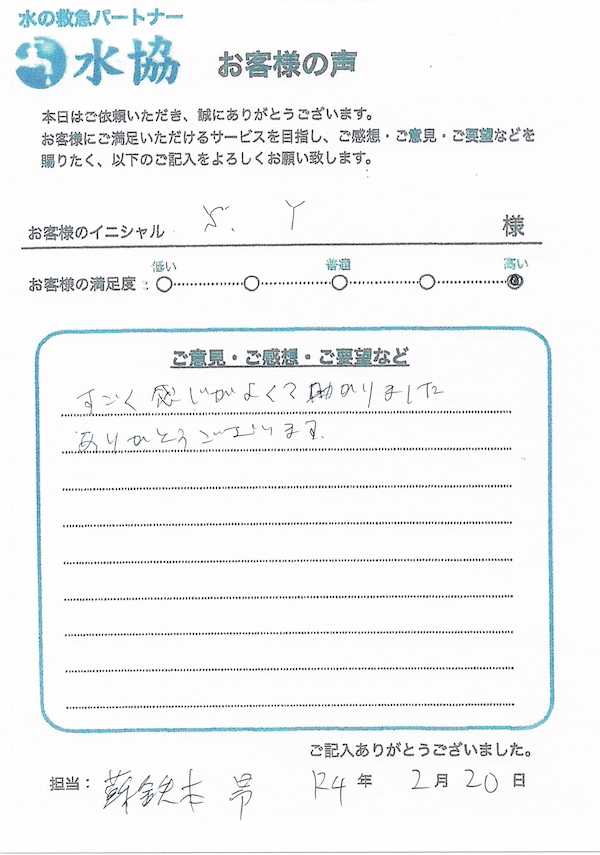 水の救急パートナー
水協 お客様の声
本日はご依頼いただき、誠にありがとうございます。
お客様にご満足いただけるサービスを目指し、ご感想・ご意見・ご要望などを
賜りたく、以下のご記入をよろしくお願い致します。
お客様のイニシャル S. Y 様
低い 普通 高い
お客様の満足度:
ご意見・ご感想・ご要望など
すごく感じがよくて助かりました
ありがとうございます.
ご記入ありがとうございました。
担当: R4年 2月20日